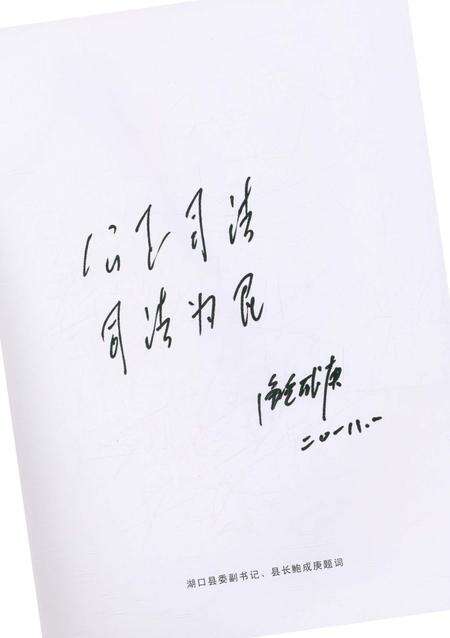 公正司法
司法为民
鲍成庚
二〇一一.一
湖口县委副书记、县长鲍成庚题词